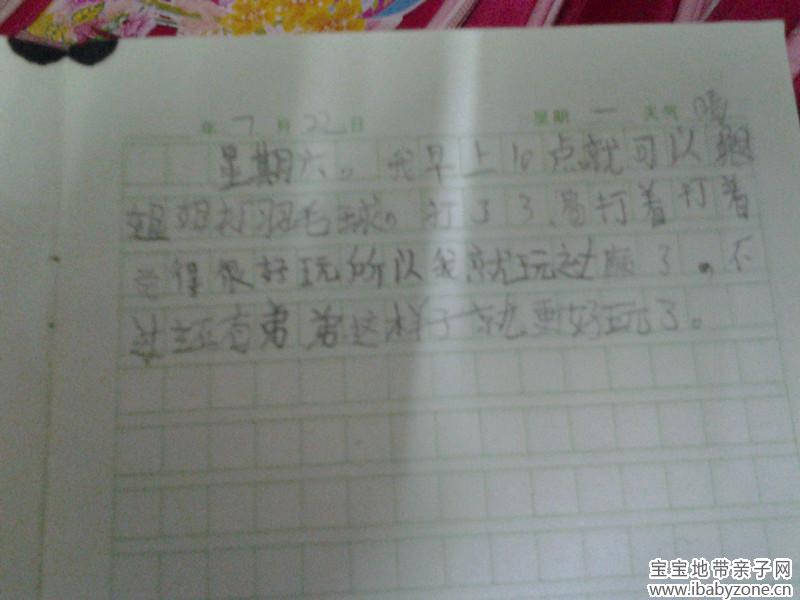 年 7 月 22 日 星期 一 天气 晴
星期六。我早上10点就可以跟
姐姐打羽毛球。打了3局打着打着
觉得很好玩所以我就玩过瘾了。不
过还有弟弟这样子就更好玩了。
宝宝地带亲子网
www.ibabyzone.cn